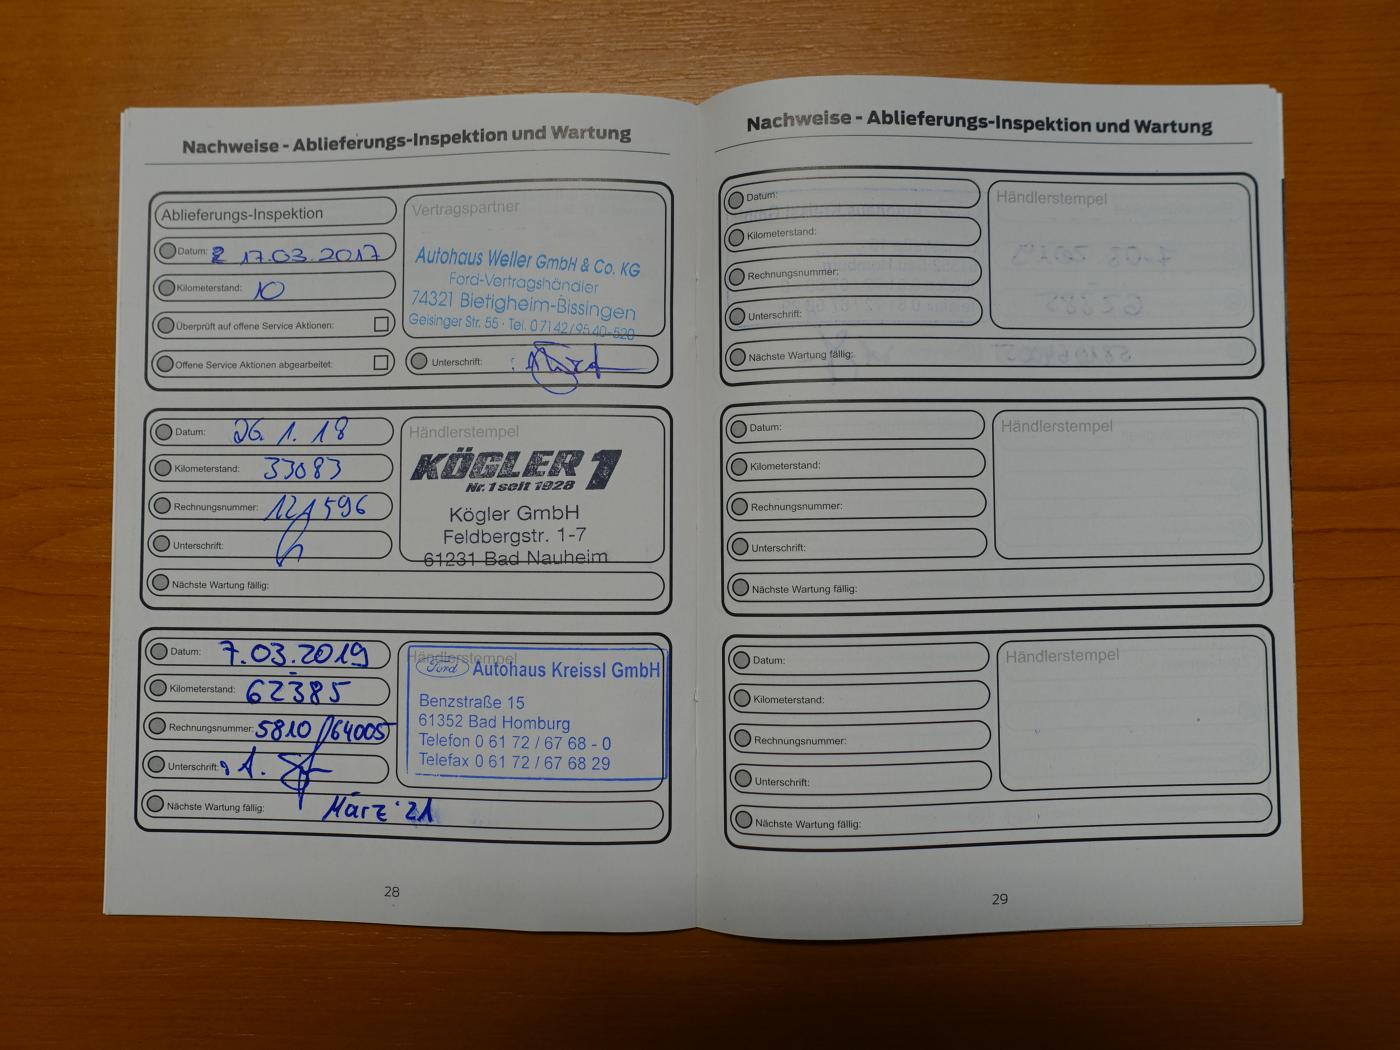 Nachweise - Ablieferungs-Inspektion und Wartung
Ablieferungs-Inspektion
Datum: 17.03.2017
Kilometerstand: 10
Überprüft auf offene Service Aktionen:
Offene Service Aktionen abgearbeitet:
Vertragspartner
Autohaus Weller GmbH & Co. KG
Ford-Vertragshändler
74321 Bietigheim-Bissingen
Geisinger Str. 55 · Tel. 0 71 42 / 95 40-520
Unterschrift:
Datum: 26. 1. 18
Kilometerstand: 33083
Rechnungsnummer: 121596
Unterschrift:
Nächste Wartung fällig:
Händlerstempel
KÖGLER 1
Nr. 1 seit 1928
Kögler GmbH
Feldbergstr. 1-7
61231 Bad Nauheim
Datum: 7.03.2019
Kilometerstand: 62385
Rechnungsnummer: 5810/164005
Unterschrift:
Nächste Wartung fällig: März '21
Händlerstempel
Ford Autohaus Kreissl GmbH
Benzstraße 15
61352 Bad Homburg
Telefon 0 61 72 / 67 68 - 0
Telefax 0 61 72 / 67 68 29
28
Nachweise - Ablieferungs-Inspektion und Wartung
Datum:
Kilometerstand:
Rechnungsnummer:
Unterschrift:
Nächste Wartung fällig:
Händlerstempel
Datum:
Kilometerstand:
Rechnungsnummer:
Unterschrift:
Nächste Wartung fällig:
Händlerstempel
Datum:
Kilometerstand:
Rechnungsnummer:
Unterschrift:
Nächste Wartung fällig:
Händlerstempel
29